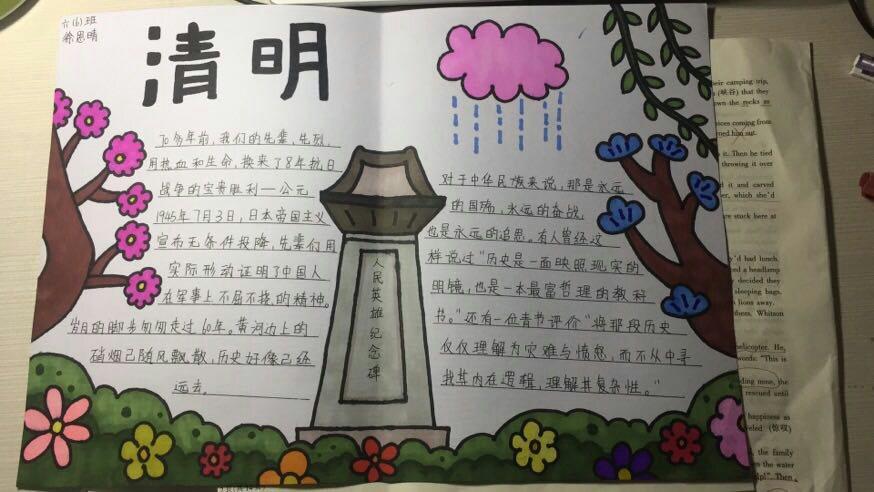 六(6)班
徐思晴
清明
70多年前，我们的先辈、先烈，
用热血和生命，换来了8年抗日
战争的宝贵胜利—公元
1945年7月3日，日本帝国主义
宣布无条件投降，先辈们用
实际形动证明了中国人
在军事上不屈不挠的精神。
岁月的脚步匆匆走过60年。黄河边上的
硝烟已随风飘散，历史好像已经
远去。
人民英雄纪念碑
对于中华民族来说，那是永远
的国殇，永远的奋战，
也是永远的追思。有人曾经这
样说过"历史是一面映照现实的
眼镜，也是一本最富哲理的教科
书。"还有一位青节评价"将那段历史
仅仅理解为灾难与愤怒，而不从中寻
找其内在逻辑，理解其复杂性。"
heir camping trip,
(峡谷) that they
own the rocks as
oices coming from
rned him out.
it. Then he tied
throwing it over
d it and carved
er, which she'd
ere stuck here at
y'd had lunch.
ed a headlamp
y decided they
sleeping bags,
n lions away.
them. Whitson
helicopter. He,
words: "This is
ding mine, the
rescued until
happiness as
veled (惊叹)
, the family
en the water
lp!". Then